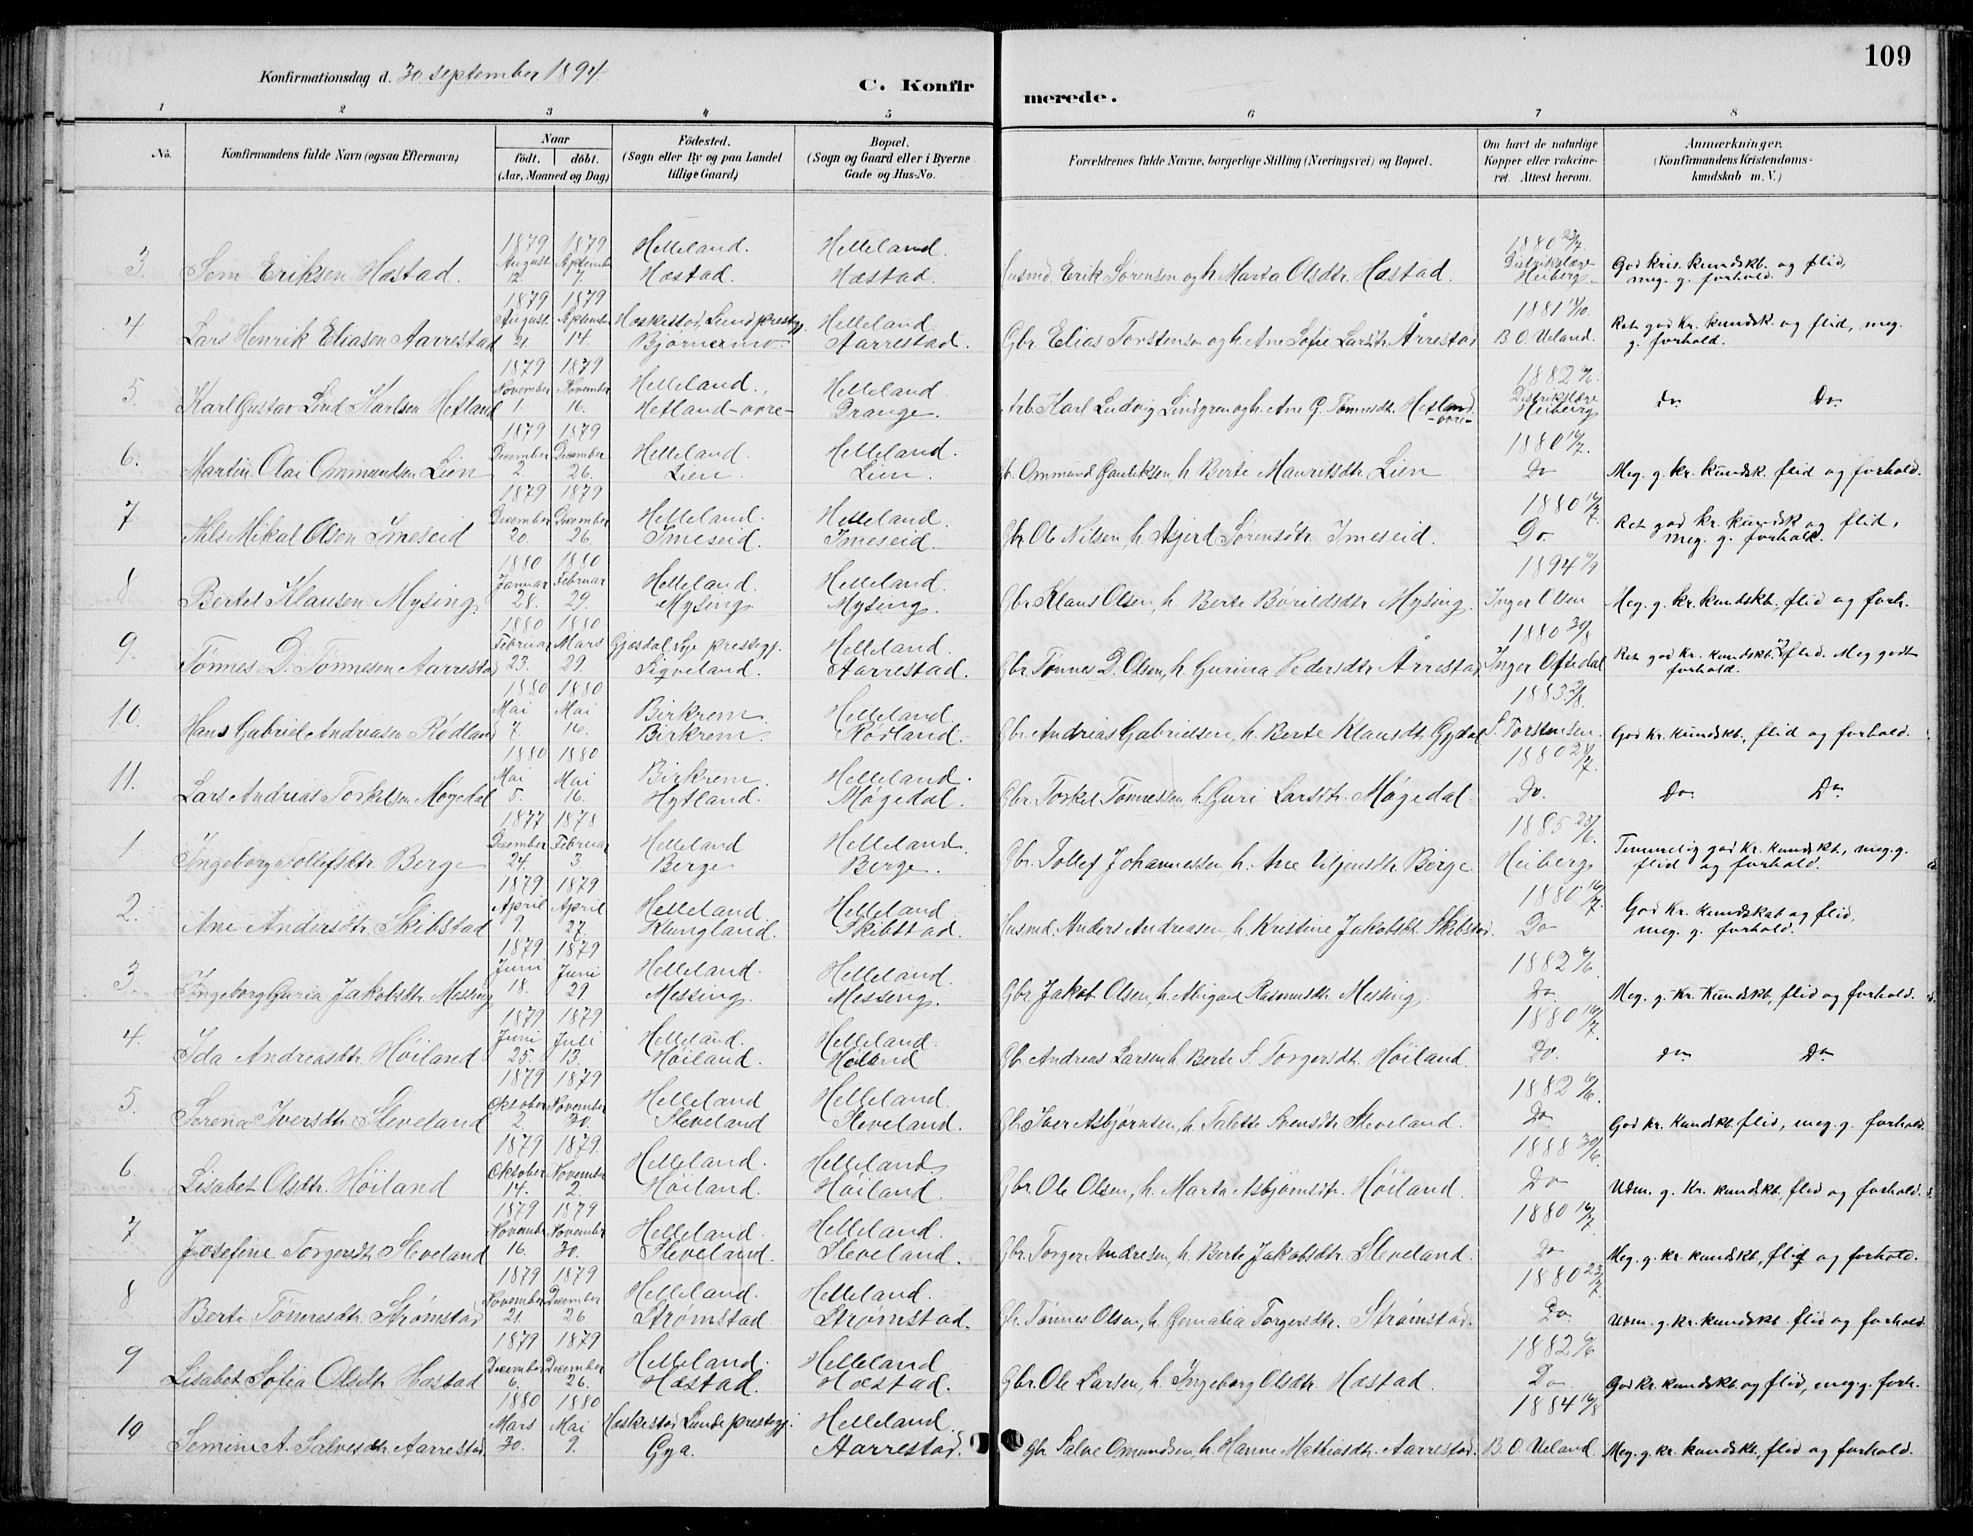 109
Konfirmationsdag d. 30. september 1894.
C. Konfirmerede.
1 2 3 4 5 6 7 8
No. Konfirmandens fulde Navn (ogsaa Efternavn) Naar født. døbt. (Aar, Maaned og Dag) Fødested. (Sogn eller By og paa Landet tillige Gaard) Bopæl. (Sogn og Gaard eller i Byerne Gade og Hus-No. Forældrenes fulde Navne, borgerlige Stilling (Næringsvei) og Bopæl. Om havt de naturlige Kopper eller vakcineret. Attest herom. Anmærkninger. (Konfirmandens Kristendomskundskab m. V.)
3. Sem Eriksen Hæstad. 1879 August 12. 1879 September 7. Helleland. Hæstad. Helleland. Hæstad. Husmd. Erik Sørensen og h. Marta Olsdtr. Hæstad. 1880 23/7. Distriktslæge Heiberg. God kris. kundskb. og flid, meg. g. forhold.
4. Lars Henrik Eliasen Aarrestad 1879 August 21. 1879 September 14. Heskestad, Lund prestegj. Bjørnermo Helleland. Aarrestad. Gbr. Elias Torstensen og h. Ane Sofie Larsdtr. Årrestad 1881 B. O. Ueland. Ret god kr. kundsk. og flid, meg. g. forhold.
5. Karl Gustav Lind Karlsen Hetland 1879 November 1. 1879 November 16. Helleland. Hetland-øvre- Helleland Drange. Arb. Karl Ludvig Lindgren og h. Ane G. Tønnesdtr. Hetland -øvre- 1882 6/6. Distriktslæge Heiberg Do. Do.
6. Martin Olai Ommundsen Lien 1879 December 2. 1879 December 26. Helleland. Lien. Helleland. Lien. Gb. Ommund Gauteksen, h. Berte Mauritsdtr. Lien 1880 16/7. Do Meg. g. kr. kundsk. flid og forhold.
7 Nils Mikal Olsen Imeseid 1879 December 20. 1879 December 26. Helleland. Imeseid. Helleland. Imeseid. Gbr. Ole Nilsen, h. Asjerd Sørensdtr. Imeseid. 1880 16/7. Do Ret god kr. kundsk og flid, meg. g. forhold.
8 Bertel Klausen Mysing. 1880 Januar 28. 1880 Februar 29. Helleland Mysing Helleland. Mysing. Gbr. Klaus Olsen, h. Berte Børildsdtr. Mysing. 1894 Inger Olsen Meg. g. kr. kundskb. flid og forh.
9. Tønnes D. Tønnesen Aarrestad 1880 Februar 23. 1880 Mars 29. Gjesdal, Lye prestegj. Sigveland. Helleland. Aarrestad. Gbr. Tønnes D. Olsen, h. Gurina Pedersdtr. Årrestad 1880 30/8 Inger Oftedal Ret god kr. kundskb. flid. Meg godt forhold.
10. Hans Gabriel Andreasen Rødland 1880 Mai 7. 1880 Mai 16. Birkrem. Birkrem. Helleland. Rødland. Gbr. Andreas Gabrielsen, h. Berte Klausdtr. Gydal 1883 S. Torstensen. God kr. kundskb., flid og forhold.
11. Lars Andreas Torkelsen Møgedal 1880 Mai 5. 1880 Mai 16. Birkrem Hytland. Helleland. Møgedal. Gbr. Torkel Tønnessen, h. Guri Larsdtr. Møgedal. 1880 Do. Do Do
1 Ingeborg Tollefsdtr. Berge 1877 December 24. 1878 Februar 3. Helleland Berge Helleland. Berge. Gbr. Tollef Johannessen, h. Ane Berge. 1885 23/6. Heiberg Temmelig god kr. kundskb., meg. g. flid og forhold.
2. Ane Andersdtr. Skibstad 1879 April 9. 1879 April 27. Helleland. Klungland. Helleland Skibstad. Husmd. Anders Andreasen, h. Kristine Jakobsdtr. Skibstad. 1880 16/7. Do God kr. kundskab og flid, meg. g. forhold.
3. Ingeborg Guria Jakobsdtr. Messing 1879 Juni 18. 1879 Juni 29. Helleland. Messing. Helleland. Messing. Gbr. Jakob Olsen, h. Abigael Rasmusdtr. Messing. 1882 6/6. Do. Meg. g. kr. kundskb., flid og forhold.
4. Ida Andreasdtr. Høiland 1879 Juni 25. 1879 Juli 13. Helleland. Høiland. Helleland. Høiland Gbr. Andreas Larsen, h. Berte S. Torgersdtr. Høiland 1880 16/7. Do. Do Do
5. Serena Iversdtr. Sleveland 1879 Oktober 2. 1879 November 30. Helleland Sleveland Helleland. Sleveland. Gbr. Iver Asbjørnsen, h. Talette Svensdtr. Sleveland. 1882 6/6. Do God kr. kundskb. flid, meg. g. forhold.
6 Lisabet Olsdtr. Høiland 1879 Oktober 14. 1879. November 2. Helleland. Høiland. Helleland. Høiland. Gbr. Ole Olsen, h. Marta Asbjørnsdtr. Høiland. 1888 30/6. Do Udm. g. kr. kundskb., flid og forhold.
7 Josefine Torgersdtr. Sleveland 1879 November 16. 1879 November 30. Helleland. Sleveland. Helleland. Sleveland. Gbr. Torger Andresen, h. Berte Jakobsdtr. Sleveland. 1880 16/7. Do Meg. g. kr. kundskb., flid og forhold.
8 Berte Tønnesdtr. Strømstad 1879 November 21. 1879 December 26. Helleland. Strømstad Helleland. Strømstad. Gbr. Tønnes Olsen, h. Gemalia Torgersdtr. Strømstad. 1880 23/7. Do. Udm. g. kr. kundskb. flid og forhold.
9 Lisabet Sofia Olsdtr Hæstad 1879 December 6. 1879 December 26. Helleland. Hæstad. Helleland Hæstad. Gbr. Ole Larsen, h. Ingeborg Olsdtr. Hæstad. 1882 6/6 Do God kr. kundskb. og flid, meg. g. forh.
10 Semine A. Salvesdtr Aarrestad 1880 Mars 30. 1880 Mai 9. Heskestad Lunde prestegj. Gya. Helleland. Aarrestad. Gbr. Salve Omundsen, h. Hanne Mathiasdtr. Aarrestad. 1884 16/8 B. O. Ueland. Meg. g. kr. kundskb., flid og forhold.